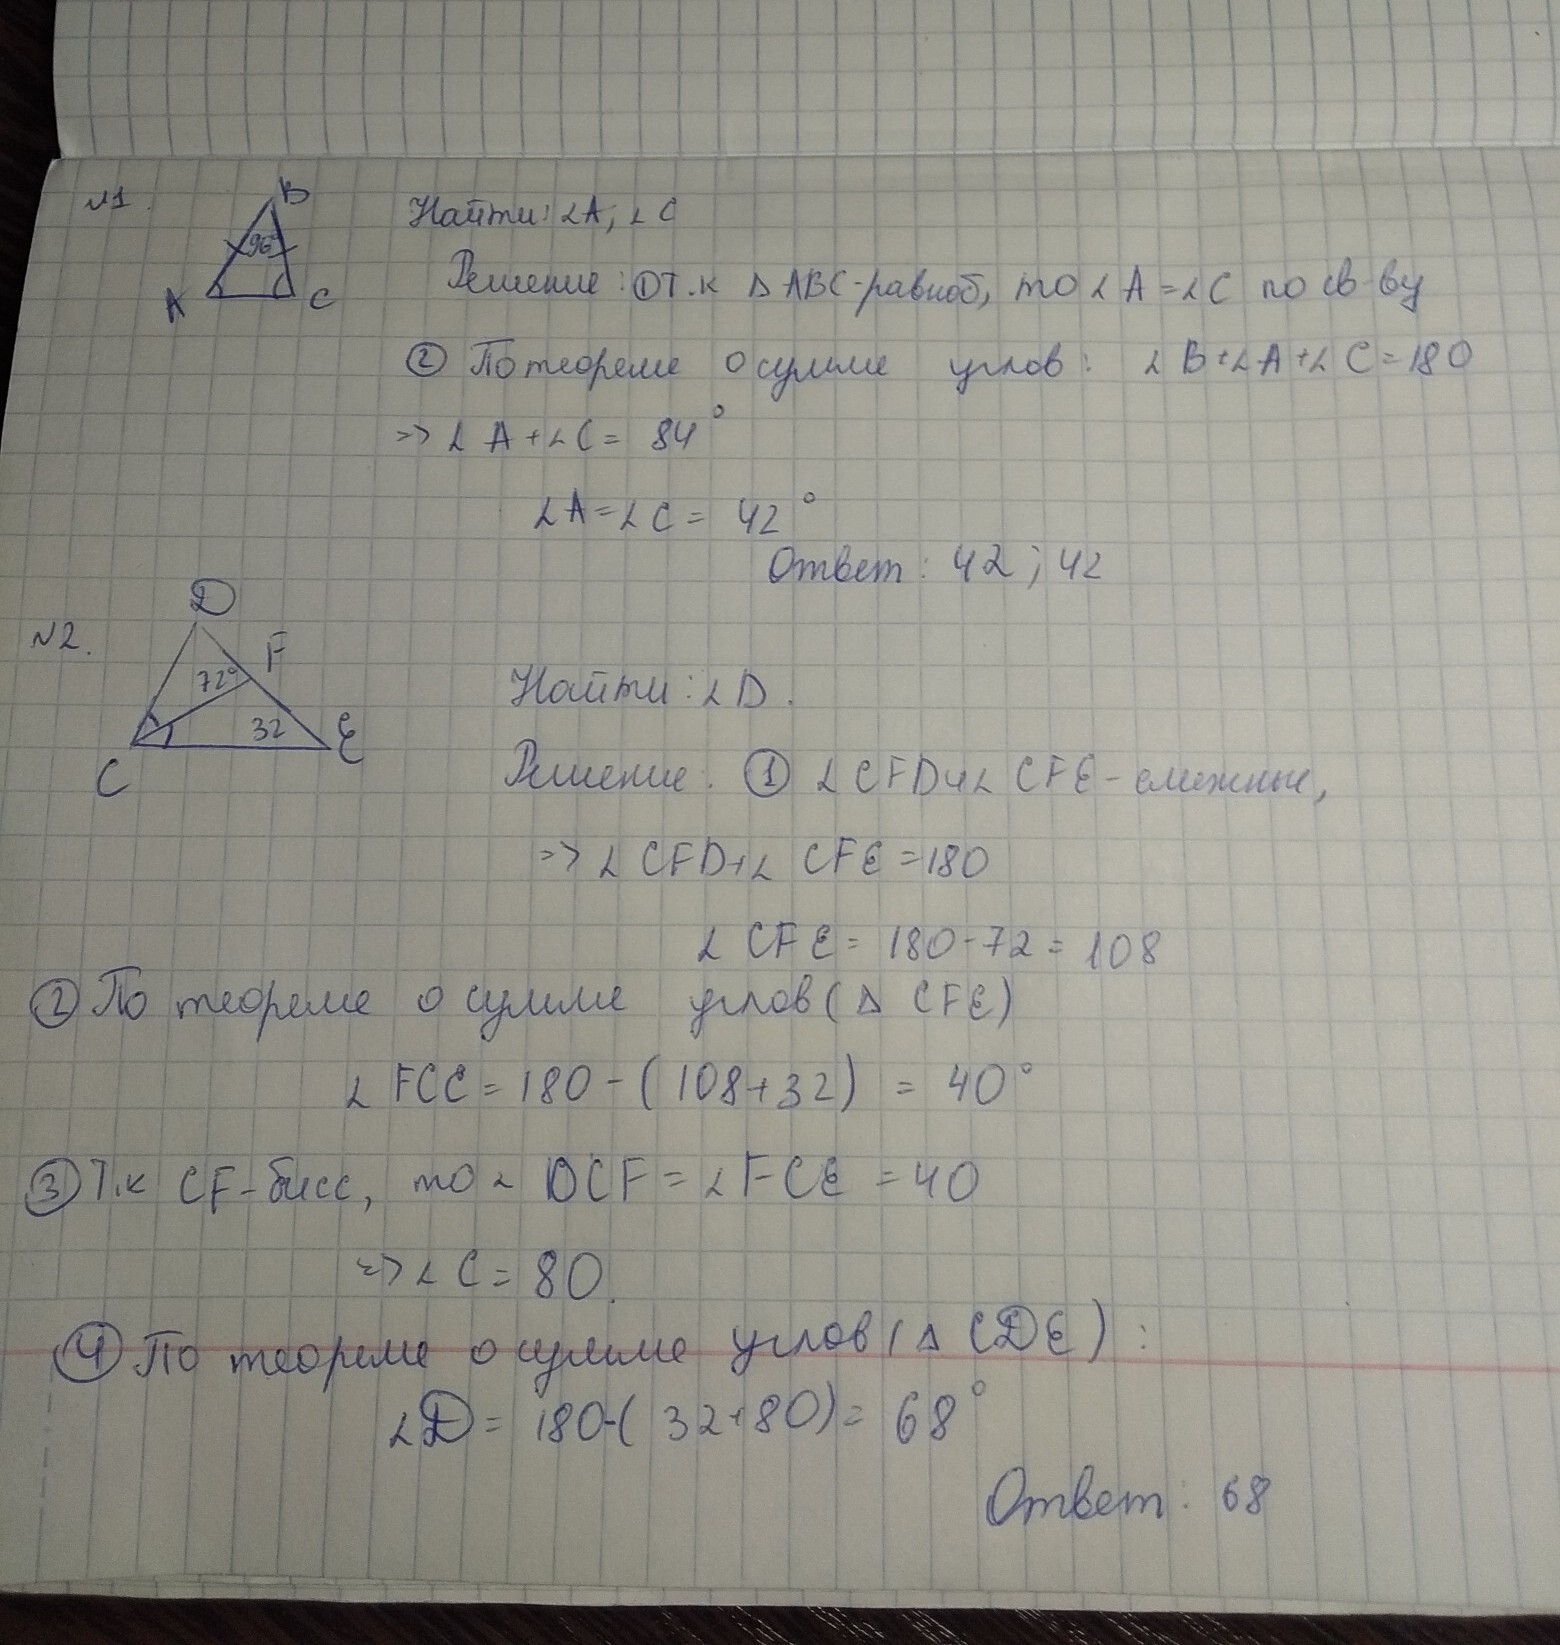 №1.
B
96°
A
C
Найти: ∠A, ∠C
Решение: ① Т.к ΔABC-равноб, то ∠A=∠C по св-ву
② По теореме о сумме углов: ∠B+∠A+∠C=180
=> ∠A+∠C= 84°
∠A=∠C= 42°
Ответ: 42; 42
№2.
D
F
72°
32
C
E
Найти: ∠D.
Решение: ① ∠CFD и ∠CFE - смежные,
=> ∠CFD+∠CFE=180
∠CFE= 180-72= 108
② По теореме о сумме углов (Δ CFE)
∠FCE=180-(108+32) = 40°
③ Т.к CF-бисс, то ∠DCF=∠FCE=40
=> ∠C=80.
④ По теореме о сумме углов (Δ CDE):
∠D= 180-( 32+80)= 68°
Ответ: 68